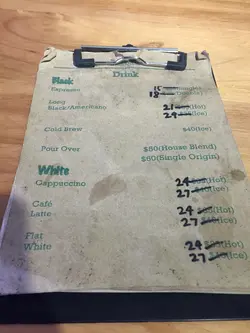 Drink
Black
Espresso 15 (Single)
18 (Double)
Long
Black/Americano 21 (Hot)
24 (Ice)
Cold Brew $40(Ice)
Pour Over $50(House Blend)
$60(Single Origin)
White
Cappuccino 24 (Hot)
27 (Ice)
Café
Latte 24 (Hot)
27 (Ice)
Flat
White 24 (Hot)
27 (Ice)